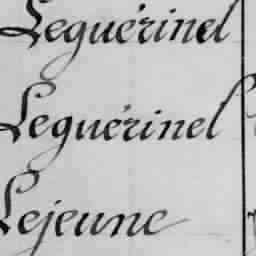 Leguérinel
Leguérinel
Lejeune